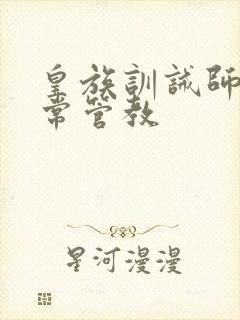 皇族訓誡師
常管教
星河漫漫